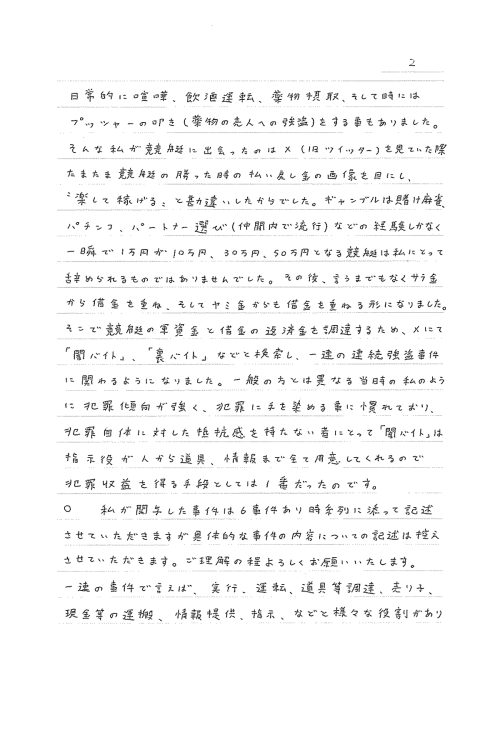 2
日常的に喧嘩、飲酒運転、薬物摂取、そして時には
プッシャーの叩き(薬物の売人への強盗)をする事もありました。
そんな私が競艇に出会ったのはX(旧ツイッター)を見ていた際
たまたま競艇の勝った時の払い戻し金の画像を目にし、
"楽して稼げる"と勘違いしたからでした。ギャンブルは賭け麻雀、
パチンコ、パートナー選び(仲間内で流行)などの経験しかなく
一瞬で1万円が10万円、30万円、50万円となる競艇は私にとって
辞められるものではありませんでした。その後、言うまでもなくサラ金
から借金を重ね、そしてヤミ金からも借金を重ねる形になりました。
そこで競艇の軍資金と借金の返済金を調達するため、Xにて
「闇バイト」、「裏バイト」などと検索し、一連の連続強盗事件
に関わるようになりました。一般の方とは異なる当時の私のよう
に犯罪傾向が強く、犯罪に手を染める事に慣れており、
犯罪自体に対した抵抗感を持たない者にとって「闇バイト」は
指示役が人から道具、情報まで全て用意してくれるので
犯罪収益を得る手段としては1番だったのです。
○ 私が関与した事件は6事件あり時系列に添って記述
させていただきますが具体的な事件の内容についての記述は控え
させていただきます。ご理解の程よろしくお願いいたします。
一連の事件で言えば、実行、運転、道具等調達、売り子、
現金等の運搬、情報提供、指示、などと様々な役割があり